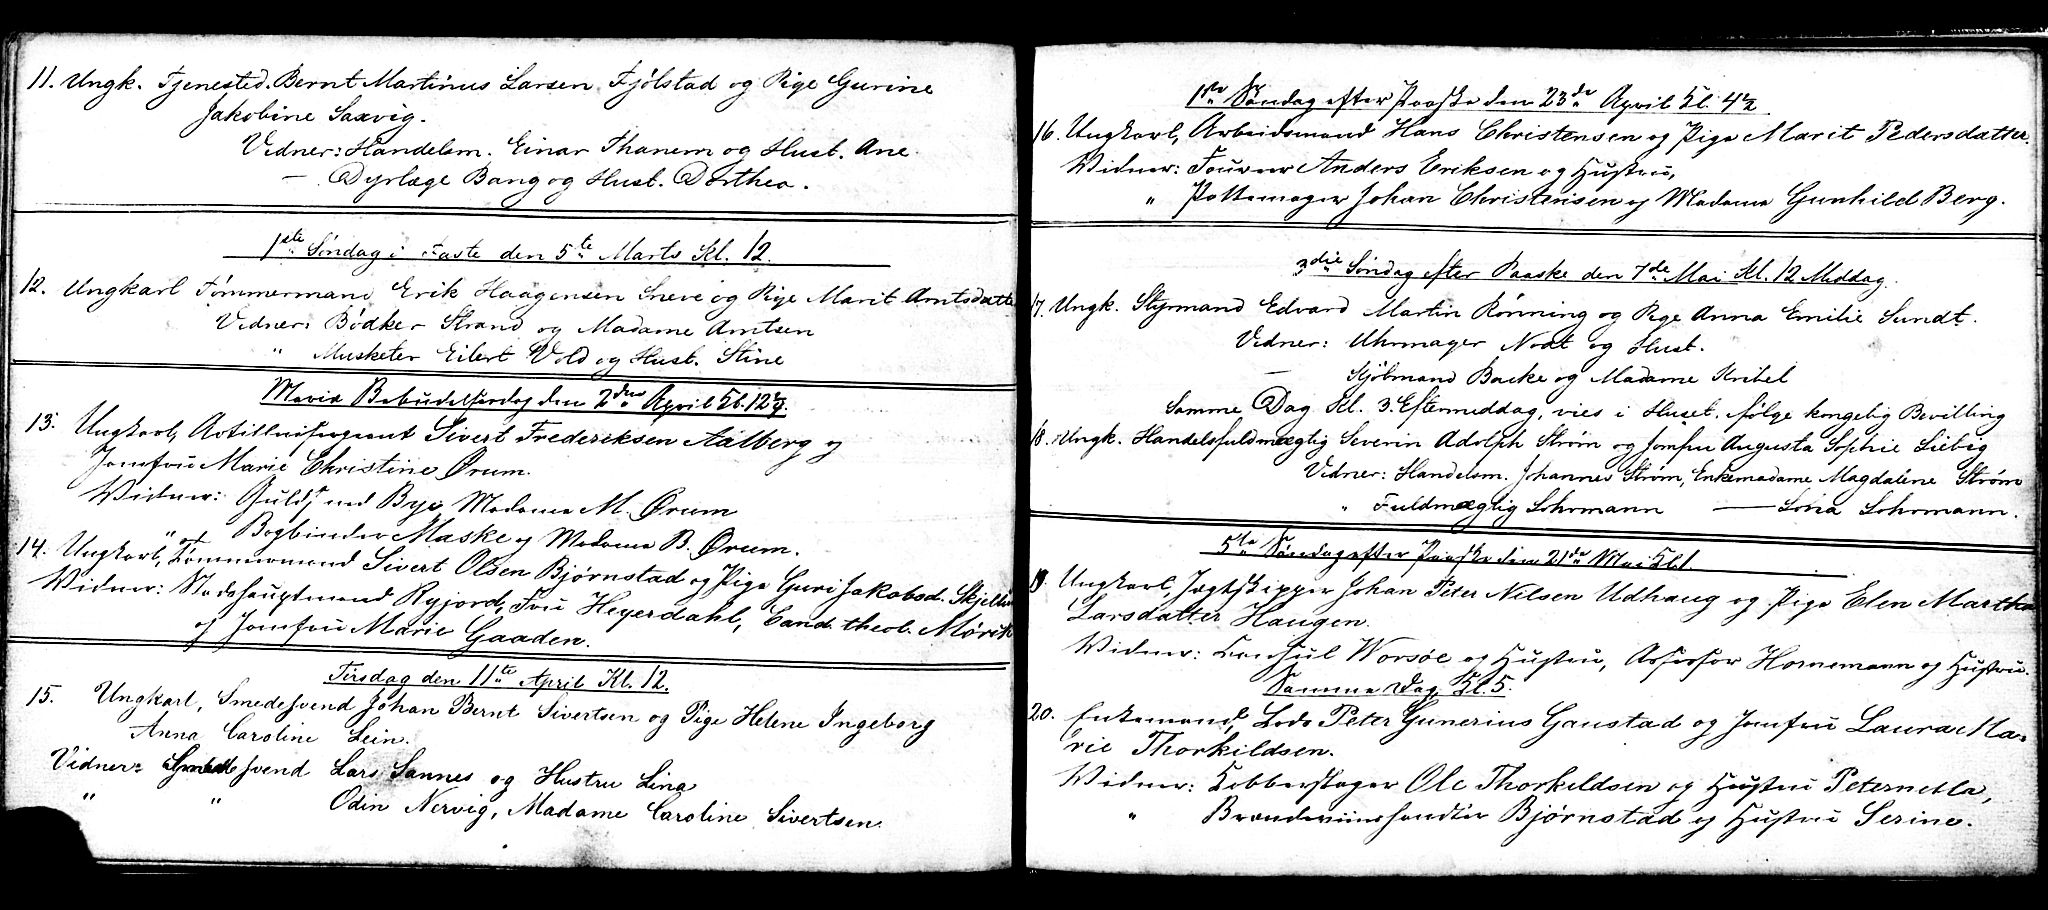 11. Ungk. Tjenested. Bernt Martinus Larsen Fjølstad og Pige Gurine
Jakobine Saxvig.
Vidner: Handelsm. Einar Thanem og Hust. Ane.
— Dyrlæge Bang og Hust. Dorthea.
1ste Søndag i Faste den 5te Marts Kl. 12.
12. Ungkarl Tømmermand Erik Haagensen Sneve og Pige Marit Arntsdatter
Vidner: Bødker Strand og Madame Arntsen
" Musketer Eilert Vold og Hust. Stine
Mariæ Bebudelsesdag den 2den April Kl. 12½.
13. Ungkarl, Artillerisergeant Sivert Frederiksen Aalberg og
Jomfru Marie Christine Ørum.
Vidner: Guldsmed Bye Madame M. Ørum
" Bogbinder Maske og Madame B. Ørum.
14. Ungkarl, Tømmermand Sivert Olsen Bjørnstad og Pige Guri Jakobsd. Skjelle
Vidner: Stadshauptmand Ryjord, Fru Heyerdahl, Cand. theol. Mørik
og Jomfru Marie Gaaden.
Tirsdag den 11te April Kl. 12.
15. Ungkarl, Smedesvend Johan Bernt Sivertsen og Pige Helene Ingeborg
Anna Caroline Lein.
Vidner: Smedesvend Lars Sannes og Hustru Lina
" " Odin Nervig, Madame Caroline Sivertsen.
1ste Søndag efter Paaske den 23de April Kl. 4½
16. Ungkarl, Arbeidsmand Hans Christensen og Pige Marit Pedersdatter.
Vidner: Fourer Anders Eriksen og Hustru,
" Pottemager Johan Christensen og Madame Gunhild Berg.
3die Søndag efter Paaske den 7de Mai Kl. 12 Middag.
17. Ungk. Styrmand Edvard Martin Rønning og Pige Anna Emilie Sundt.
Vidner: Uhrmager Nodt og Hust.
— Kjøbmand Backe og Madame Kribel
Samme Dag Kl. 3. Eftermiddag, vies i Huset, følge kongelig Bevilling
18. Ungk. Handelsfuldmægtig Severin Adolph Strøm og Jomfru Augusta Sophie Liebig
Vidner: Handelsm. Johannes Strøm, Enkemadame Magdalene Strøm
" Fuldmægtig Lohrmann — Lovia Lohrmann.
5te Søndag efter Paaske den 21de Mai Kl. 1
19. Ungkarl, Jægtskipper Johan Peter Nilsen Udhaug og Pige Elen Martha
Larsdatter Haugen.
Vidner: Consul Worsöe og Hustru, Assessor Hornemann og Hustru.
Samme Dag Kl. 5.
20. Enkemand, Lods Peter Gunerius Gaustad og Jomfru Laura Ma-
rie Thorkildsen.
Vidner: Kobberslager Ole Thorkildsen og Hustru Peternella,
" Brændeviinshandler Bjørnstad og Hustru Serine.